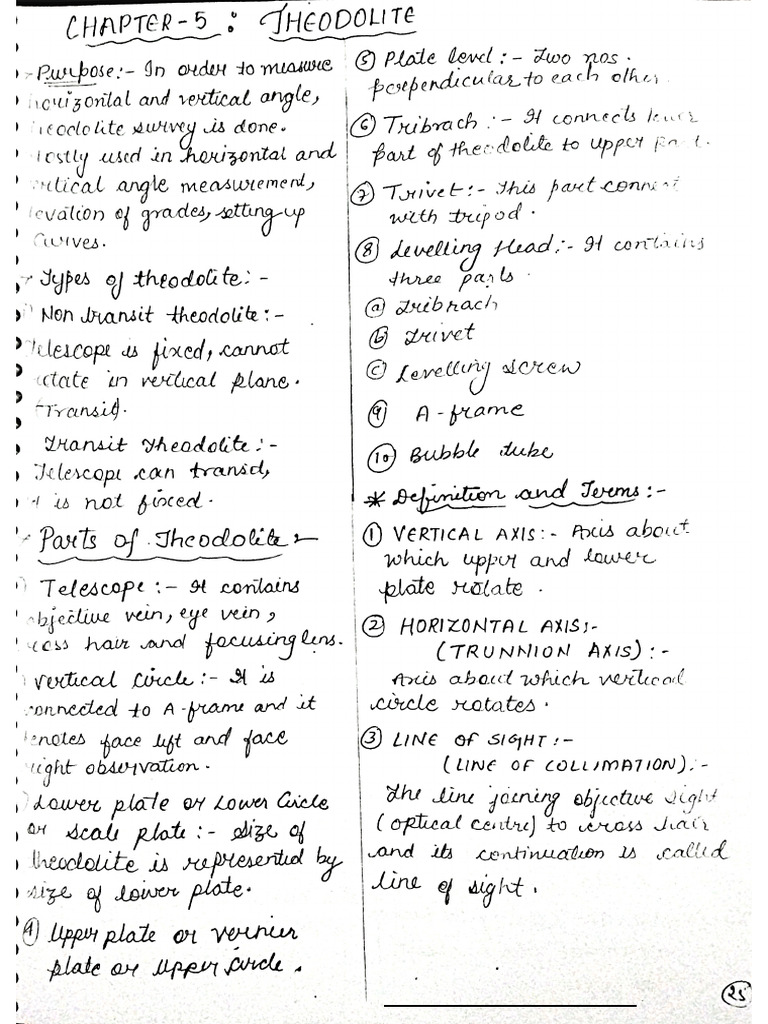 CHAPTER-5 : THEODOLITE
Purpose:- In order to measure
horizontal and vertical angle,
theodolite survey is done.
Mostly used in horizontal and
vertical angle measurement,
levation of grades, setting up
Curves.
Types of theodolite:-
Non transit theodolite:-
Telescope is fixed, cannot
rotate in vertical plane.
(Transit).
Transit Theodolite:-
Telescope can transit,
it is not fixed.
Parts of Theodolite:-
Telescope:- It contains
objective vein, eye vein,
cross hair and focusing lens.
Vertical Circle:- It is
connected to A-frame and it
denotes face left and face
right observation.
Lower plate or Lower Circle
or scale plate:- Size of
theodolite is represented by
size of lower plate.
④ Upper plate or vernier
plate or upper circle.
⑤ Plate level:- Two nos.
perpendicular to each other.
⑥ Tribrach:- It connects lower
part of theodolite to upper part.
⑦ Trivet:- This part connect
with tripod.
⑧ Levelling Head:- It contains
three parts.
ⓐ Tribrach
ⓑ Trivet
ⓒ Levelling screw
⑨ A-frame
⑩ Bubble tube
* Definition and Terms:-
① VERTICAL AXIS:- Axis about
which upper and lower
plate rotate.
② HORIZONTAL AXIS:-
(TRUNNION AXIS):-
Axis about which vertical
circle rotates.
③ LINE OF SIGHT:-
(LINE OF COLLIMATION):-
The line joining objective sight
(optical centre) to cross hair
and its continuation is called
line of sight.
25